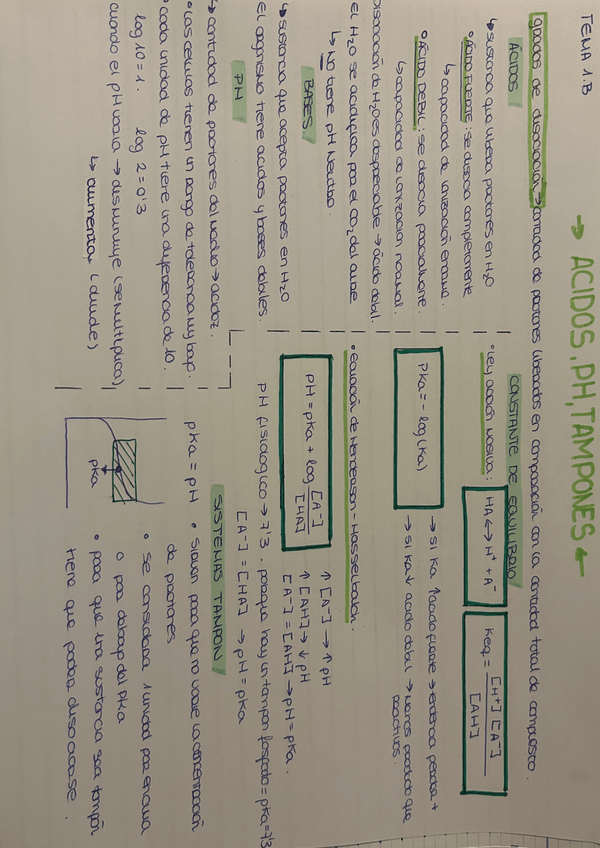 TEMA 1.B
→ ÁCIDOS, PH, TAMPONES ←
grados de disociación → cantidad de protones liberados en comparación con la cantidad total de compuesto.
ÁCIDOS
↳ sustancia que libera protones en H2O
• ÁCIDO FUERTE: se disocia completamente
↳ capacidad de ionización enorme.
• ÁCIDO DEBIL: se disocia parcialmente.
↳ capacidad de ionización normal.
disociación de H2O es despreciable → ácido debil.
El H2O se acidifica por el CO2 del aire
↳ No tiene pH Neutro.
BASES
↳ sustancia que acepta protones en H2O
El organismo tiene ácidos y bases débiles.
PH
↳ cantidad de protones del medio → acidez.
• Las células tienen un rango de tolerancia muy bajo.
• cada unidad de pH tiene una diferencia de 10.
log 10 = 1. log 2 = 0'3
cuando el pH varia → disminuye (se multiplica)
↳ aumenta (divide)
CONSTANTE DE EQUILIBRIO
• Ley acción masiva: HA ↔ H+ + A-
Keq = [H+] [A-] / [AH]
PKa = - log (Ka)
→ si Ka ↑ ácido fuerte → tendencia perder +
→ si Ka ↓ ácido debil → menos producto que reactivos.
• ecuación de Henderson - Hasselbalch.
PH = pKa + log [A-] / [HA]
↑ [A-] → ↑ pH
↑ [AH] → ↓ pH
[A-] = [AH] → pH = pKa.
PH fisiologico → 7'3. porque hay un tampon fosfato = pKa = 7'3
[A-] = [HA] → pH = pKa
SISTEMAS TAMPON
pKa = pH • sirven para que no varie la concentración
de protones
• se considera 1 unidad por encima
o por debajo del PKa
• para que una sustancia sea tampón
tiene que poder disociarse.
pKa